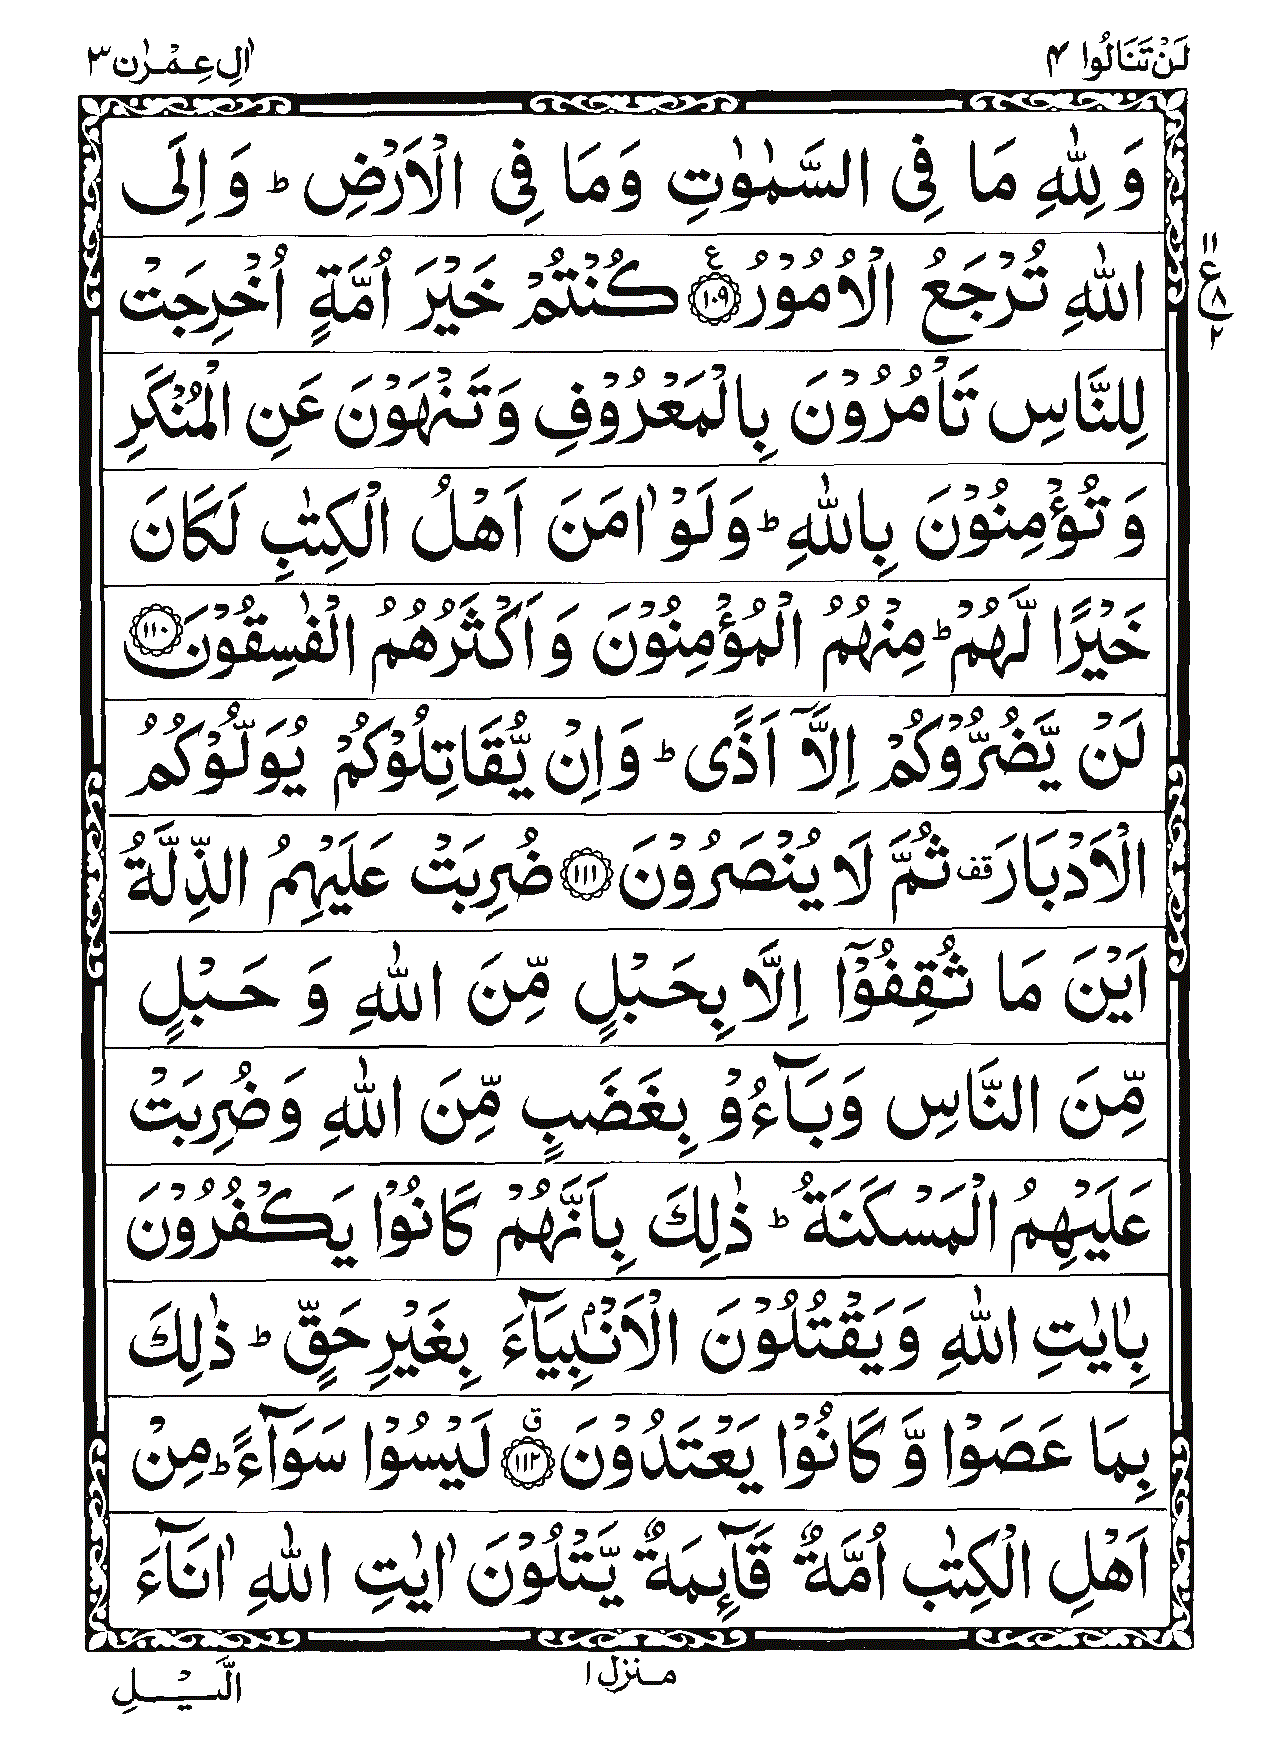 لَنْ تَنَالُوا ۴
اٰلِ عِمْرٰن ۳
وَ لِلّٰهِ مَا فِی السَّمٰوٰتِ وَمَا فِی الْاَرْضِ ؕ وَ اِلَی
اللّٰهِ تُرْجَعُ الْاُمُوْرُ ﴿۱۰۹﴾ۧ كُنْتُمْ خَیْرَ اُمَّةٍ اُخْرِجَتْ
۱۱ ع ۸ ۲
لِلنَّاسِ تَاْمُرُوْنَ بِالْمَعْرُوْفِ وَتَنْهَوْنَ عَنِ الْمُنْكَرِ
وَ تُؤْمِنُوْنَ بِاللّٰهِ ؕ وَلَوْ اٰمَنَ اَهْلُ الْكِتٰبِ لَكَانَ
خَیْرًا لَّهُمْ ؕ مِنْهُمُ الْمُؤْمِنُوْنَ وَ اَكْثَرُهُمُ الْفٰسِقُوْنَ ﴿۱۱۰﴾
لَنْ یَّضُرُّوْكُمْ اِلَّاۤ اَذًی ؕ وَ اِنْ یُّقَاتِلُوْكُمْ یُوَلُّوْكُمُ
الْاَدْبَارَ قف ثُمَّ لَا یُنْصَرُوْنَ ﴿۱۱۱﴾ ضُرِبَتْ عَلَیْهِمُ الذِّلَّةُ
اَیْنَ مَا ثُقِفُوْۤا اِلَّا بِحَبْلٍ مِّنَ اللّٰهِ وَ حَبْلٍ
مِّنَ النَّاسِ وَبَآءُوْ بِغَضَبٍ مِّنَ اللّٰهِ وَضُرِبَتْ
عَلَیْهِمُ الْمَسْكَنَةُ ؕ ذٰلِكَ بِاَنَّهُمْ كَانُوْا یَكْفُرُوْنَ
بِاٰیٰتِ اللّٰهِ وَیَقْتُلُوْنَ الْاَنْۢبِیَآءَ بِغَیْرِ حَقٍّ ؕ ذٰلِكَ
بِمَا عَصَوْا وَّ كَانُوْا یَعْتَدُوْنَ ﴿۱۱۲﴾ ق لَیْسُوْا سَوَآءً ؕ مِنْ
اَهْلِ الْكِتٰبِ اُمَّةٌ قَآىِٕمَةٌ یَّتْلُوْنَ اٰیٰتِ اللّٰهِ اٰنَآءَ
منزل ۱
الَّیْلِ